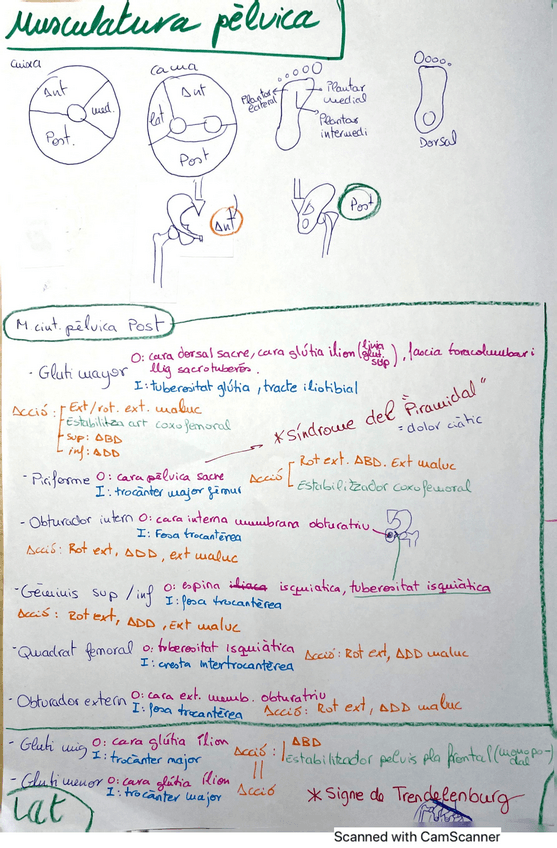 Musculatura pèlvica
Cuixa
Ant
med.
Post.
Cama
Ant
lat
Post
Plantar lateral
Plantar medial
Plantar intermedi
Dorsal
Ant
Post
M cint. pèlvica Post
- Gluti mayor O: cara dorsal sacre, cara glútia ilion (línia glut. sup), fascia toracolumbar i
llig sacrotuberós.
I: tuberositat glútia, tracte iliotibial
Acció: Ext/rot. ext. maluc
Estabilitza art coxofemoral
sup: ABD
inf: ADD
* Síndrome del "Piramidal"
= dolor ciàtic
- Piriforme O: cara pèlvica sacre
I: trocànter major fèmur
Acció Rot ext. ABD. Ext maluc
Estabilitzador coxofemoral
- Obturador intern O: cara interna membrana obturatriu
I: Fosa trocantèrea
Acció: Rot ext, ADD, ext maluc
- Gèminis sup/inf O: espina iliaca isquiatica, tuberositat isquiàtica
I: fosa trocantèrea
Acció: Rot ext, ADD, Ext maluc
- Quadrat femoral O: tuberositat isquiàtica
I: cresta intertrocantèrea
Acció: Rot ext, ADD maluc
- Obturador extern O: cara ext. memb. obturatriu
I: fosa trocantèrea Acció: Rot ext, ADD maluc
- Gluti mig O: cara glútia ilion
I: trocànter major
Acció: ABD
Estabilitzador pelvis pla frontal (monopodal)
- Gluti menor O: cara glútia ilion
I: trocànter major Acció
* Signe de Trendelenburg
Lat
Scanned with CamScanner